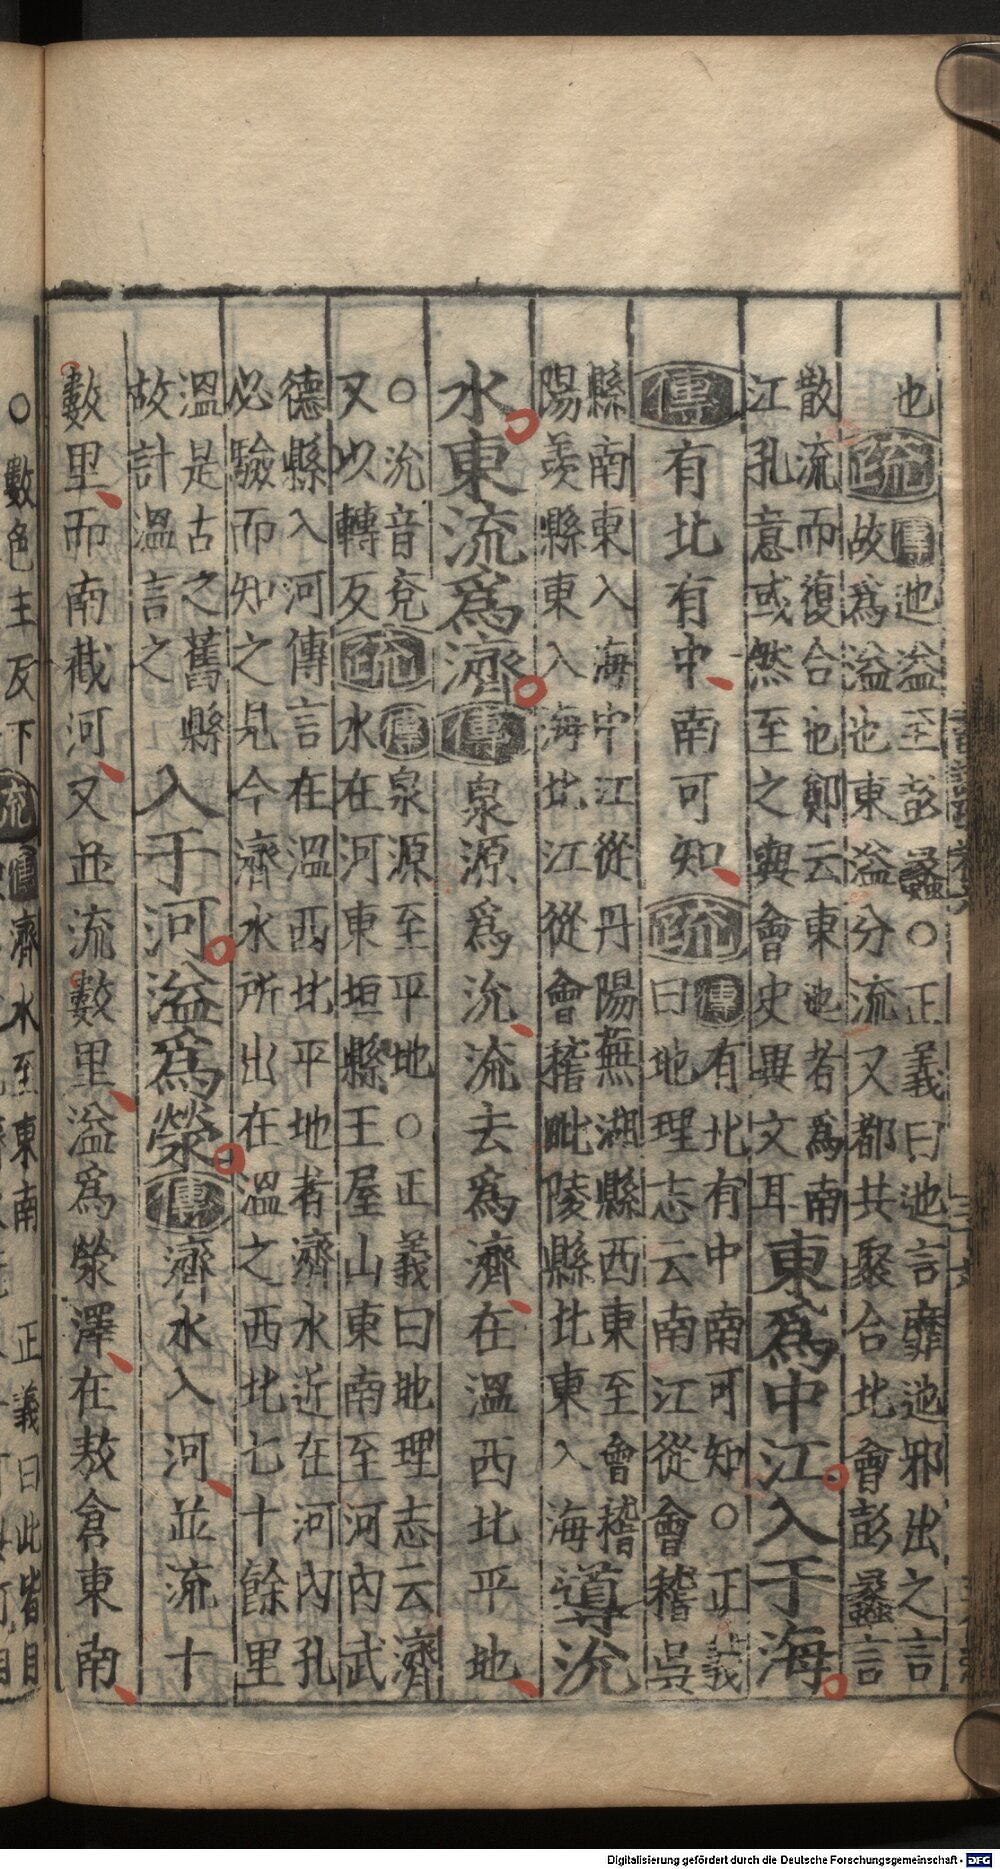 也疏傳迆溢至彭蠡○正義曰迆言靡迆邪出之言
故爲溢也東溢分流又都共聚合北會彭蠡言
散流而復合也鄭云東迆者爲南
江孔意或然至之與會史異文耳東爲中江入于海
傳有北有中南可知疏傳有北有中南可知○正義
曰地理志云南江從會稽吳
縣南東入海中江從丹陽蕪湖縣西東至會稽
陽羨縣東入海北江從會稽毗陵縣北東入海導沇
水東流爲濟傳泉源爲沇流去爲濟在溫西北平地
○沇音兗疏傳泉源至平地○正義曰地理志云濟
又以轉反水在河東垣縣王屋山東南至河內武
德縣入河傳言在溫西北平地者濟水近在河內孔
必驗而知之見今濟水所出在溫之西北七十餘里
溫是古之舊縣
故計溫言之入于河溢爲滎傳濟水入河並流十
數里而南截河又並流數里溢爲滎澤在敖倉東南
○數色主反下疏傳濟水至東南 正義曰此皆目
Digitalisierung gefördert durch die Deutsche Forschungsgemeinschaft - DFG